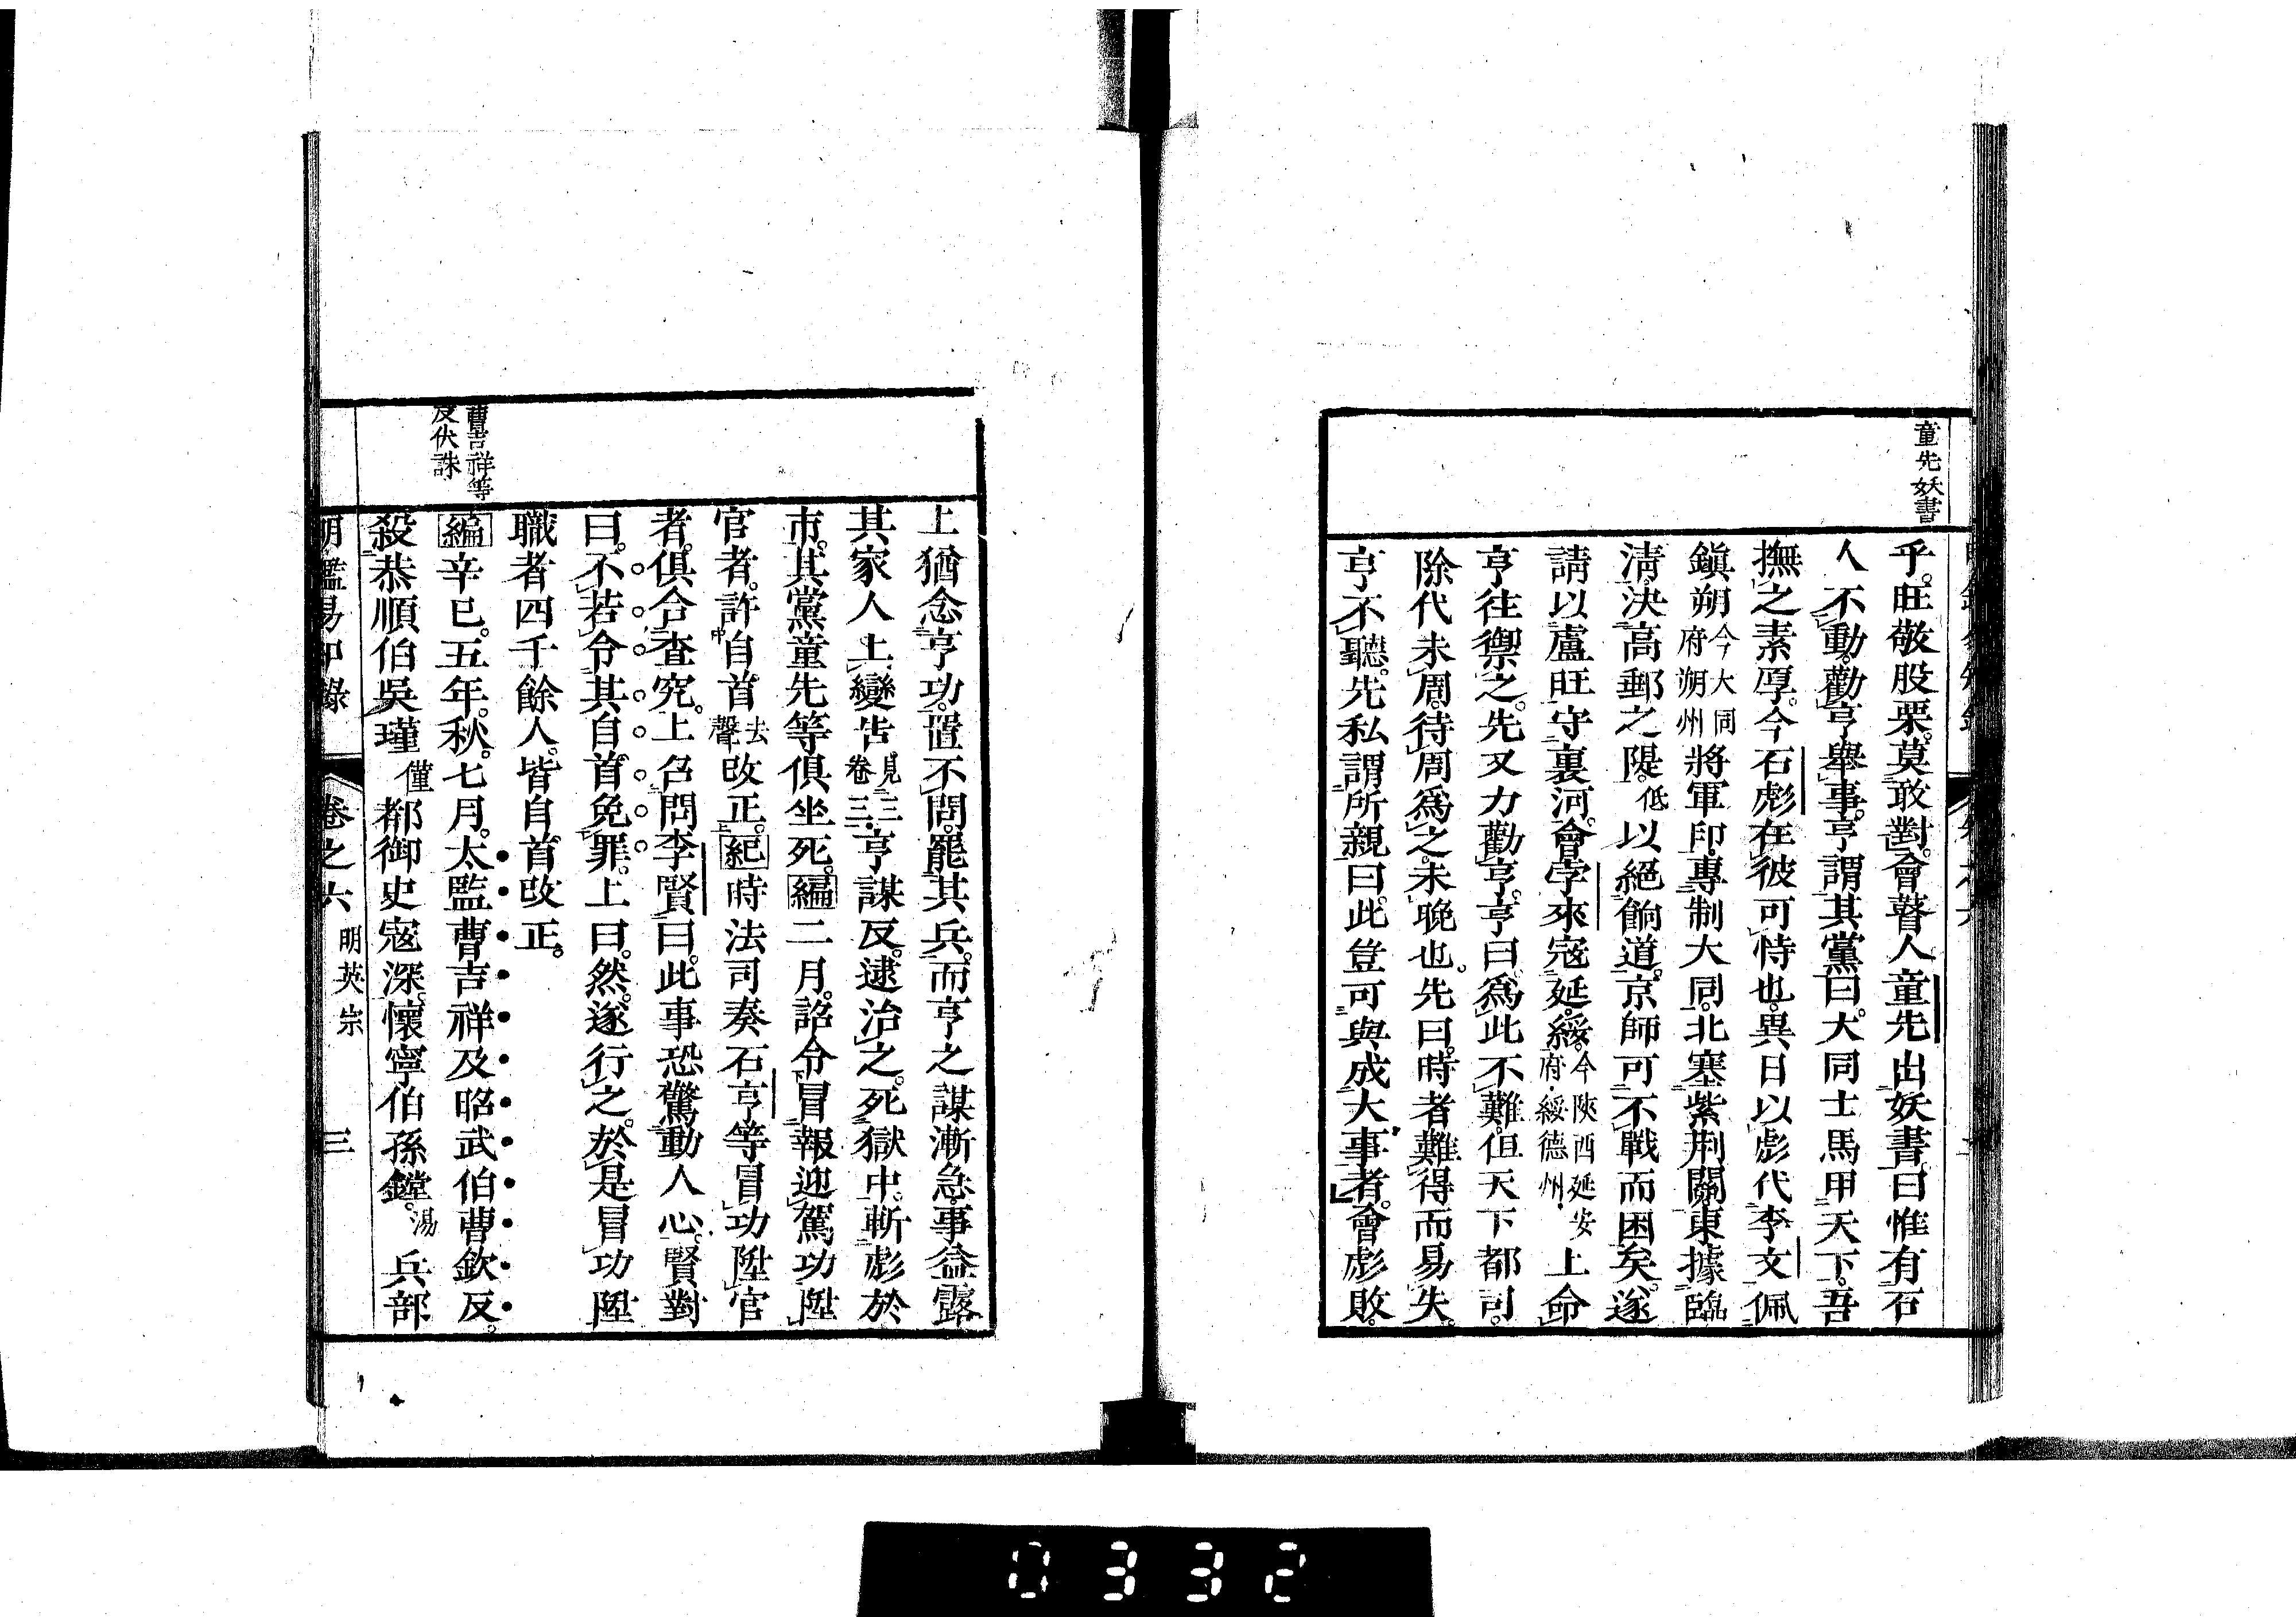 童先妖書
乎。旺敬股栗。莫敢對。會瞽人童先出妖書曰惟有石
人不動。勸亨舉事。亨謂其黨曰。大同士馬甲天下。吾
撫之素厚。今石彪在彼可恃也。異日以彪代李文佩
鎮朔今大同府朔州將軍印。專制大同。北塞紫荆關。東據臨
淸。決高郵之隄。低以絕餉道。京師可不戰而困矣。遂
請以盧旺守裏河。會孛來寇延綏。今陜西延安府・綏德州・上命
亨往禦之。先又力勸亨。亨曰。爲此不難。但天下都司。
除代未周。待周爲之。未晚也。先曰。時者難得而易失。
亨不聽。先私謂所親曰。此豈可與成大事者。會彪敗。
上猶念亨功。置不問。罷其兵。而亨之謀漸急。事益露
其家人上變告。見三卷三亨謀反。逮治之。死獄中。斬彪於
市。其黨童先等俱坐死。編二月。詔令冒報迎駕功陞
官者。許自首去聲改正。紀時法司奏石亨等冒功陞官
者。俱合查究。上召問李賢曰。此事恐驚動人心。賢對
曰。不若令其自首免罪。上曰。然。遂行之。於是冒功陞
職者四千餘人。皆自首改正。
曹吉祥等
反伏誅
編辛巳。五年。秋。七月。太監曹吉祥及昭武伯曹欽反。
殺恭順伯吳瑾僅都御史寇深。懷寧伯孫鏜。湯兵部
明鑑易知錄 卷之六 明英宗 三
0332